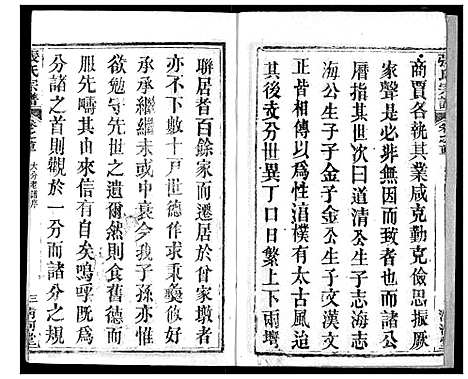 商賈各執其業咸克勤克儉思振厥
家聲是必非無因而致者也與同志
曆指某世次曰道清公子志海志
海公生子金子金公生子文漢文
正昔相傳以為性湻樸有太古風迨
其後支分世異丁口日繁上下兩壪
聯居者百餘家而遷居於脅家壪者
亦不下數十戶世德作求秉彝攸好
承承繼繼未或中衰今我子孫亦惟
欲勉守其世之遺爾然則食舊德而
服先疇其由來者固有自矣嗚呼既為
分諸之首則觀於一分而諸分之規
張氏宗譜
卷之首
大分老譜序
三
張氏宗譜
卷之首